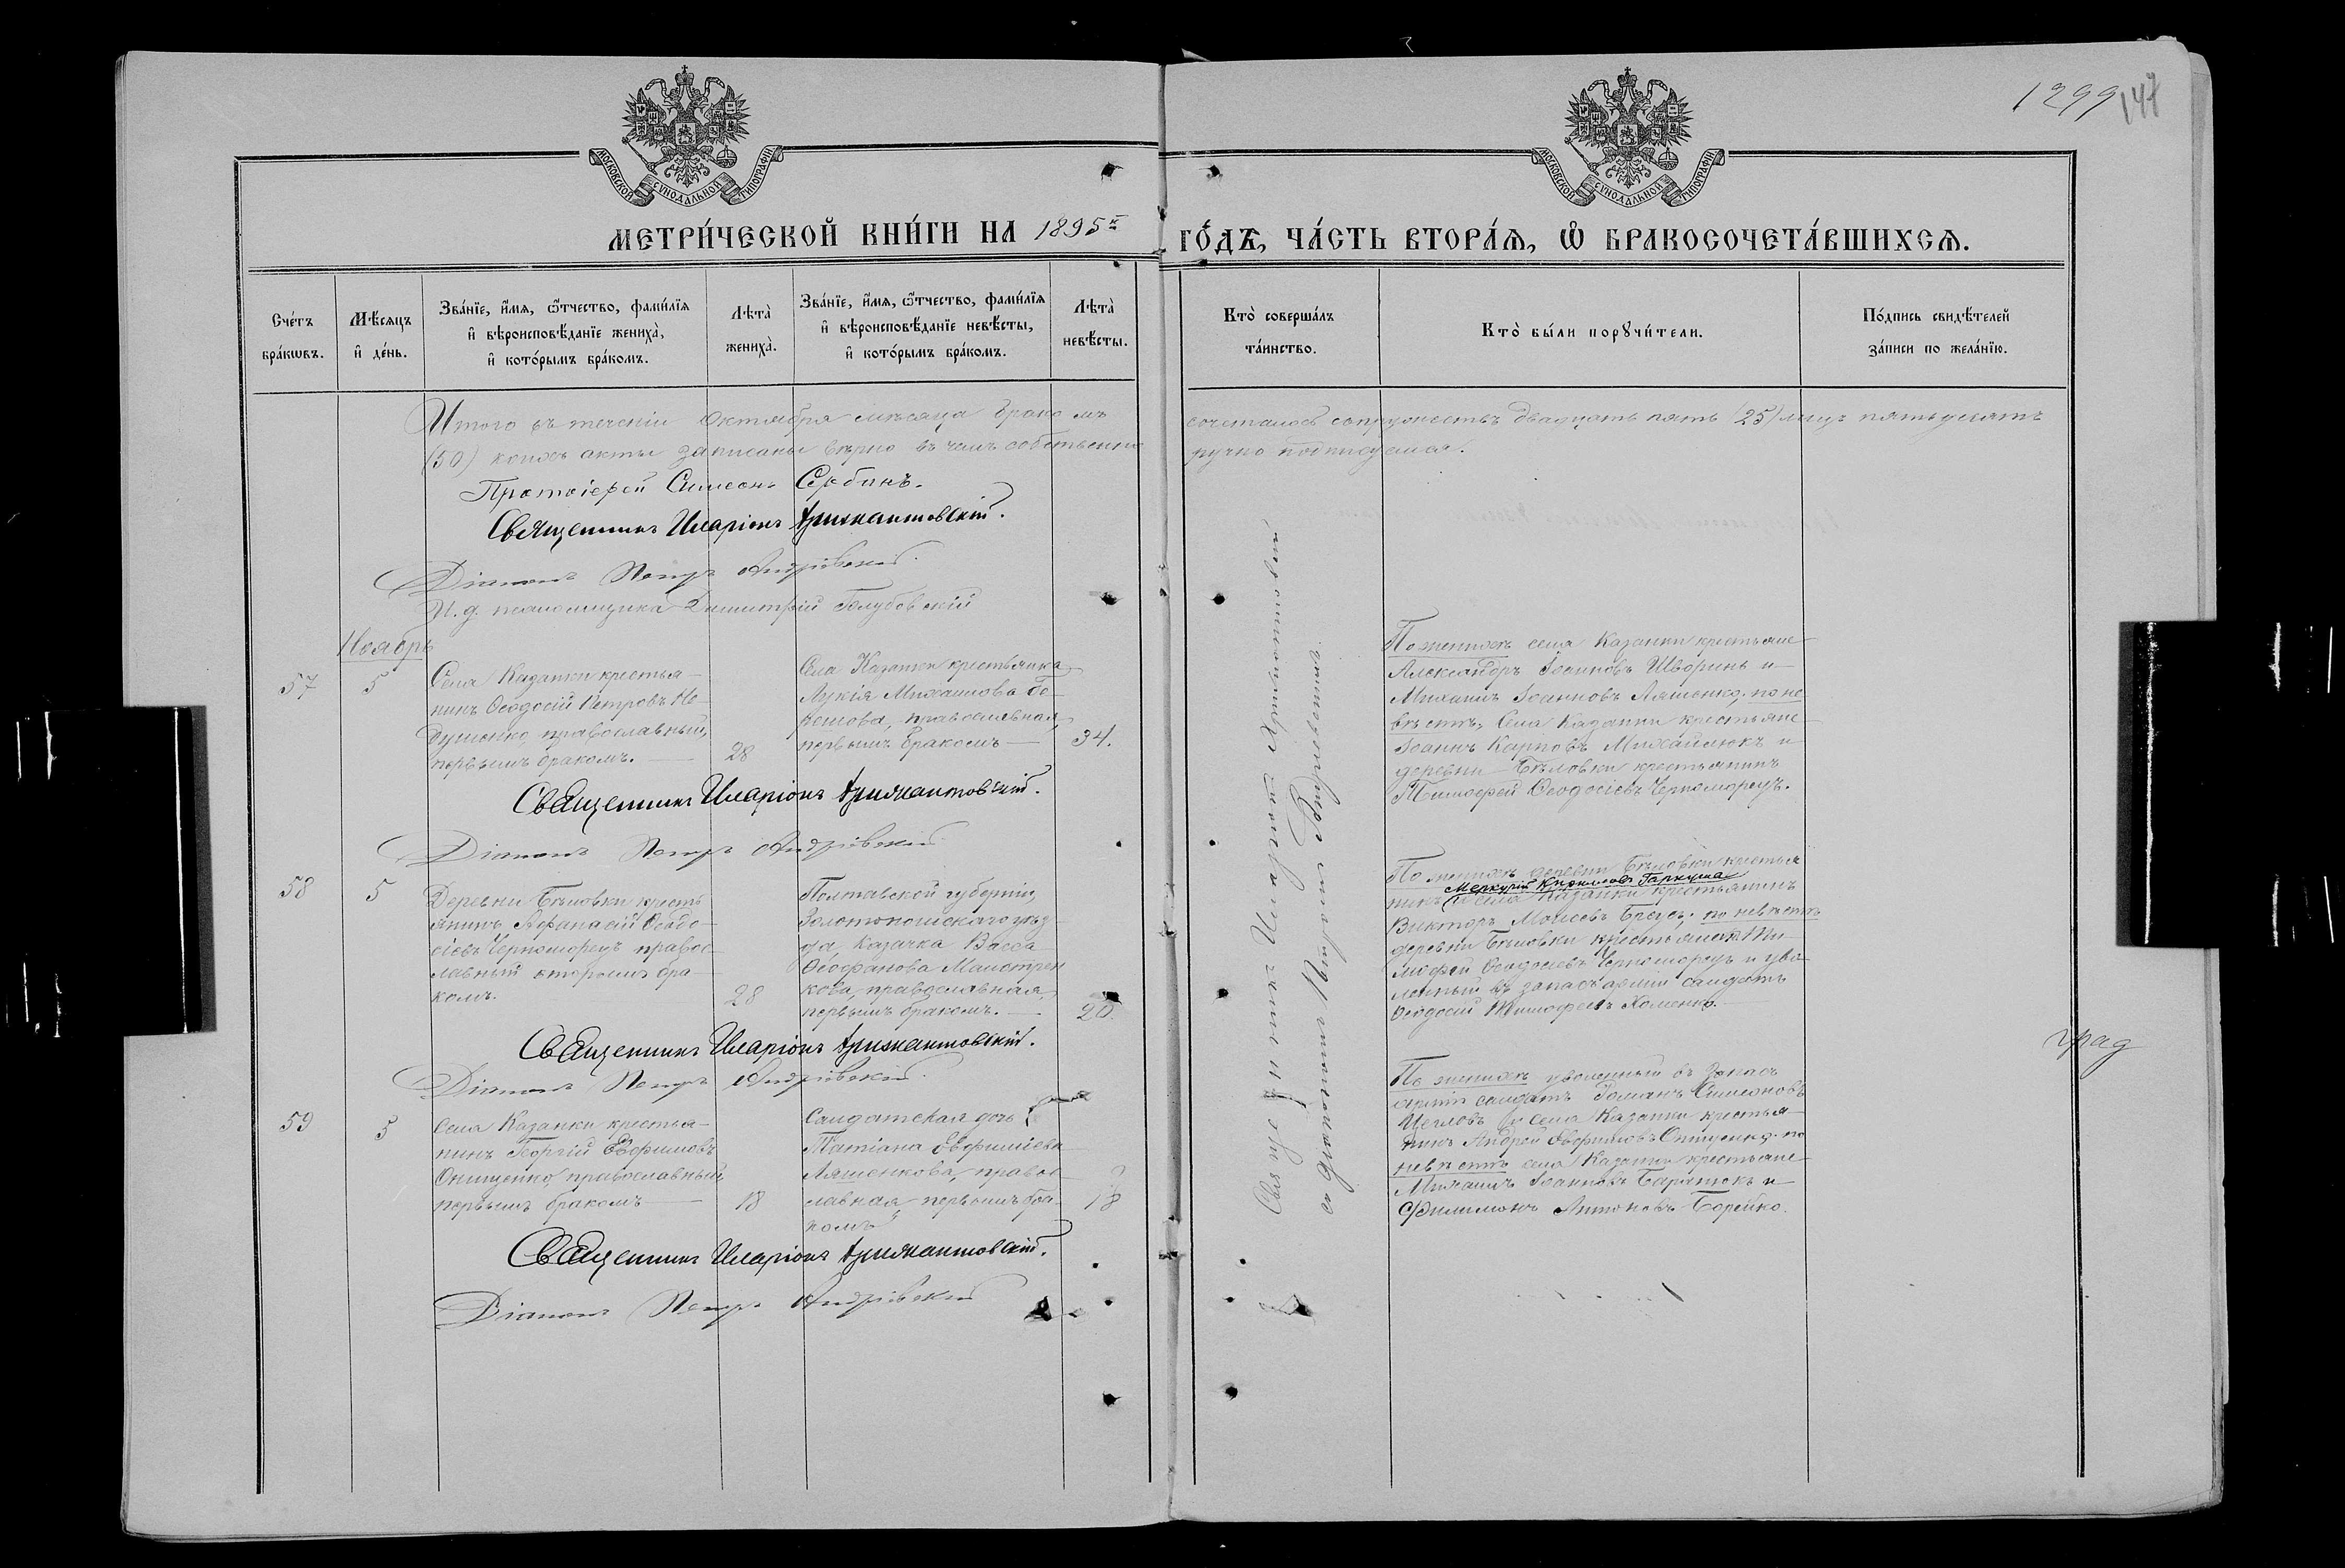 1299
147
МОСКОВСКОЙ СѴНОДАЛЬНОЙ ТИПОГРАФІИ
МОСКОВСКОЙ СѴНОДАЛЬНОЙ ТИПОГРАФІИ
МЕТРИ́ЧЕСКОЙ КНИ́ГИ НА 1895й ГО́ДЪ, ЧА́СТЬ ВТОРА́Ѧ, Ѡ҆ БРАКОСОЧЕТА́ВШИХСѦ.
Сче́тъ бра́кωвъ.
Мѣ́сяцъ и҆ де́нь.
Зва́нїе, и҆́мя, ѻ҆́тчество, фами́лїя
и҆ вѣроисповѣ́данїе жениха̀,
и҆ кото́рымъ бра́комъ.
Лѣта̀ жениха̀.
Зва́нїе, и҆́мя, ѻ҆́тчество, фами́лїя
и҆ вѣроисповѣ́данїе невѣ́сты,
и҆ кото́рымъ бра́комъ.
Лѣта̀ невѣ́сты.
Кто̀ соверша́лъ та́инство.
Кто̀ бы́ли порꙋчи́тели.
По́дпись свидѣ́телей
за́писи по жела́нїю.
Итого въ теченіи Октября мѣсяца бракомъ сочеталось супружествъ двадцать пять (25) лицъ пятьдесятъ
(50) коихъ акты записаны вѣрно въ чемъ собственно ручно подписуемся.
Протоіерей Симеонъ Сербинъ.
Священникъ Иларіонъ Арихантовскій.
Діаконъ Петръ Андріевскій
И. д. псаломщика Димитрій Голубовскій
Ноябрь
57
5
Села Казанки крестья-
нинъ Ѳеодосій Петровъ Не-
душенко, православный,
первымъ бракомъ.
28
Села Казанки крестьянка
Лукія Михаилова
православная,
первымъ бракомъ
34.
По женихѣ села Казанки крестьяне
Александръ Іоанновъ Шворинь и
Михаилъ Іоанновъ Ляшенко; по не
вѣстѣ, Села Казанки крестьяне
Іоаннъ Карповъ Михайлюкъ и
деревни Бѣловки крестьянинъ
Тимофей Ѳеодосіевъ Черноморецъ.
Священникъ Иларіонъ Арихантовскій.
Діаконъ Петръ Андріевскій
58
5
Деревни Бѣловки кресть
янинъ Афанасій Ѳеодо-
сіевъ Черноморецъ правос-
лавный вторымъ бра-
комъ.
28
Полтавской губерніи,
Золотоношскаго уѣз-
да, Казачка Васса
Ѳеофанова Маистрен
кова, православная,
первымъ бракомъ.
20.
По женихѣ деревни Бѣловки крестья
Меркурій Кириловъ Гаркуша
нинъ и села Казанки крестьянинъ
Викторъ Моисевъ Бреусъ; по невѣстѣ
деревни Бѣловки крестьянинъ Ти-
мофей Ѳеодосіевъ Черноморецъ и уво
ленный въ запасъ арміи солдатъ
Ѳеодосій Тимофеевъ Хоменко.
Священникъ Иларіонъ Арихантовскій.
Діаконъ Петръ Андріевскій.
град
59
5
Села Казанки крестья-
нинъ Георгій Евфимовъ
Онищенко православный
первымъ бракомъ
18
Солдатская дочь
Татіана Евфиміева
Ляшенкова, правос-
лавная, первымъ бра-
комъ
18
По женихѣ уволенный въ запасъ
арміи солдатъ Романъ Симеоновъ
Щегловъ и села Казанки крестья-
нинъ Андрей Евфимовъ Онищенко; по
невѣстѣ села Казанки крестьяне
Михаилъ Іоанновъ Баратюкъ и
Филимонъ Антоновъ Борейко.
Священникъ Иларіонъ Арихантовскій.
Діаконъ Петръ Андріевскій
Священникъ Иларіонъ Арихантовскій
съ діакономъ Петромъ Андріевскимъ